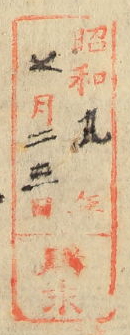 昭和九年
七月二三日